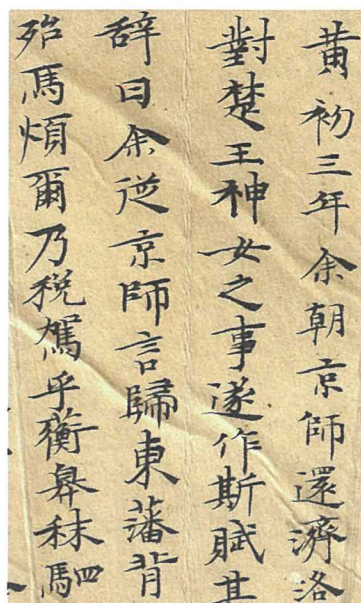 黄初三年余朝京師還濟洛
對楚王神女之事遂作斯賦其
辞曰余従京師言歸東藩背
殆馬煩爾乃税駕乎蘅皋秣駟